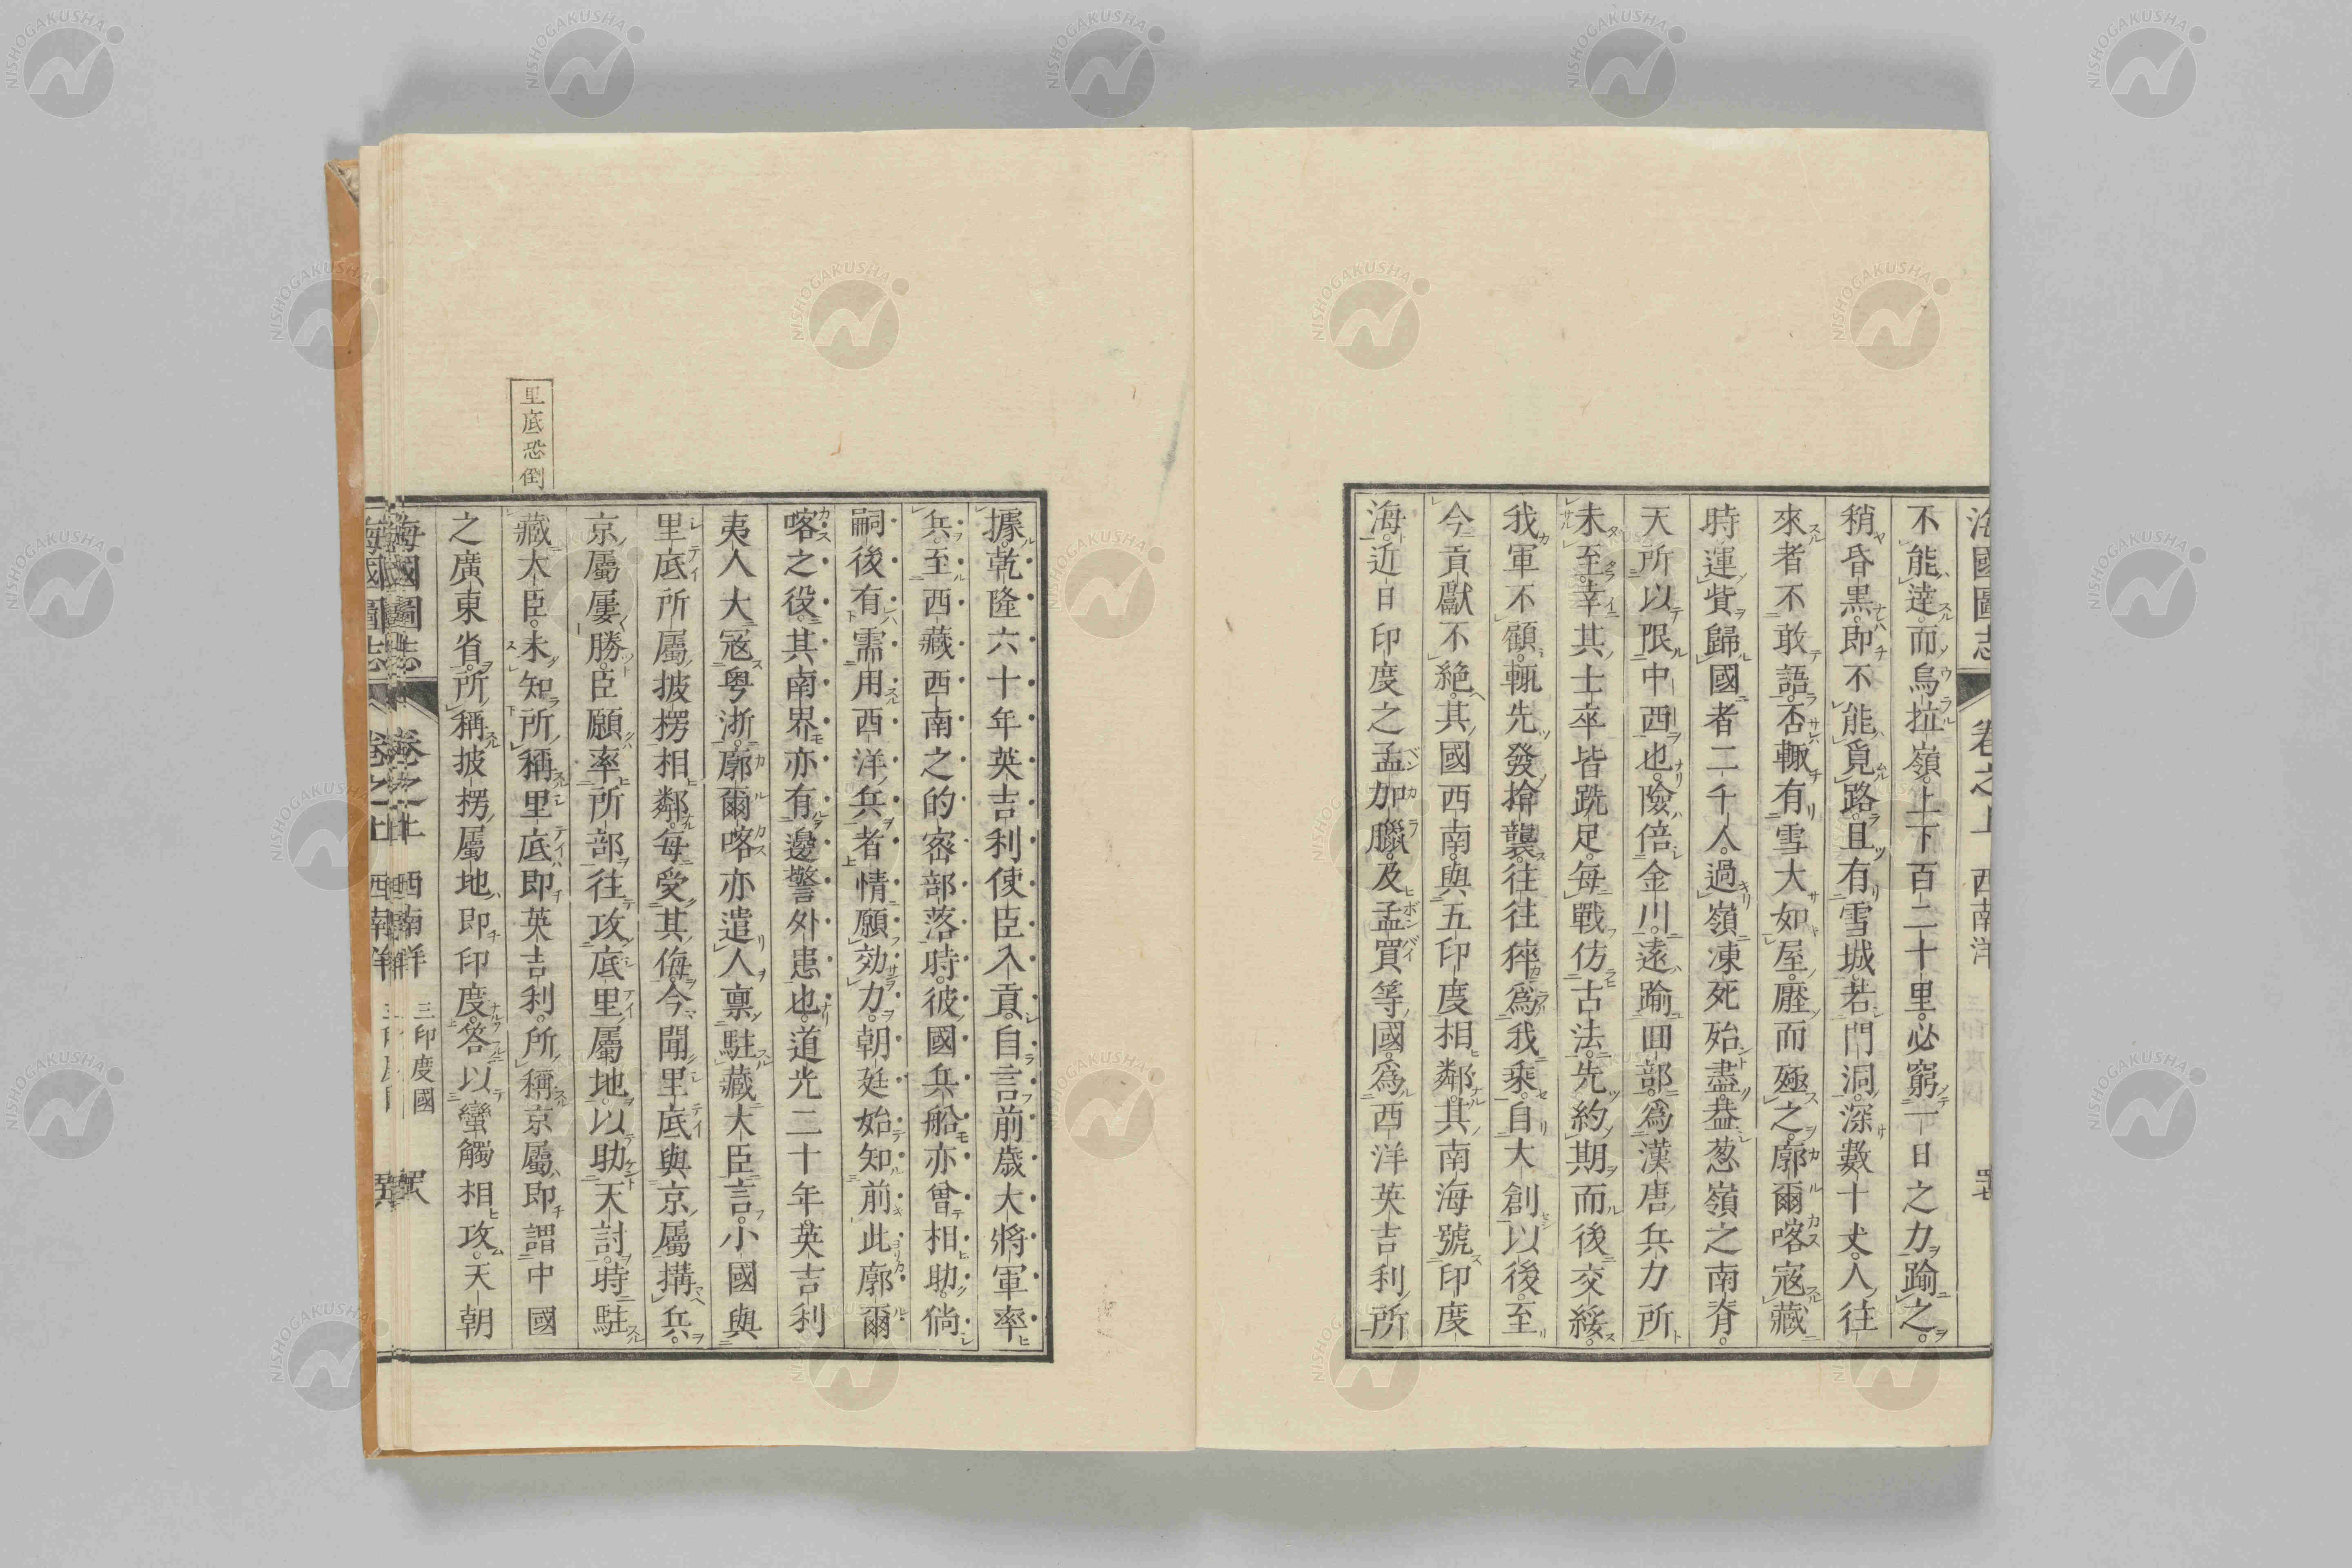 海國圖志 卷之上 西南洋
不能達而烏拉嶺上下百二十里必窮一日之力踰之
稍昏黒即不能覓路且有雪城若門洞深數十丈人往
來者不敢語否輙有雪大如屋壓而殛之廓爾喀宼藏
時運貲歸國者二千人過嶺凍死殆盡葢葱嶺之南脊
天所以限中西也險倍金川遠踰回部爲漢唐兵力所
未至幸其士卒皆跣足每戰仿古法先約期而後交綏
我軍不顧輒先發掩襲往往猝爲我乘自大創以後至
今貢獻不絶其國西南與五印度相鄰其南海號印度
海近日印度之孟加臘及孟買等國爲西洋英吉利所
據乾隆六十年英吉利使臣入貢自言前歲大將軍率
兵至西藏西南之的宻部落時彼國兵船亦曾相助倘
嗣後有需用西洋兵者情願効力朝廷始知前此廓爾
喀之役其南界亦有邊警外患也道光二十年英吉利
夷人大宼粤浙廓爾喀亦遣人禀駐藏大臣言小國與
里底所屬披楞相鄰每受其侮今聞里底與京屬搆兵
京屬屢勝臣願率所部往攻底里屬地以助天討時駐
里底恐倒
藏大臣未知所稱里底即英吉利所稱京屬即謂中國
之廣東省所稱披楞屬地即印度答以蠻觸相攻天朝
海國圖志 卷之上 西南洋 三印度國